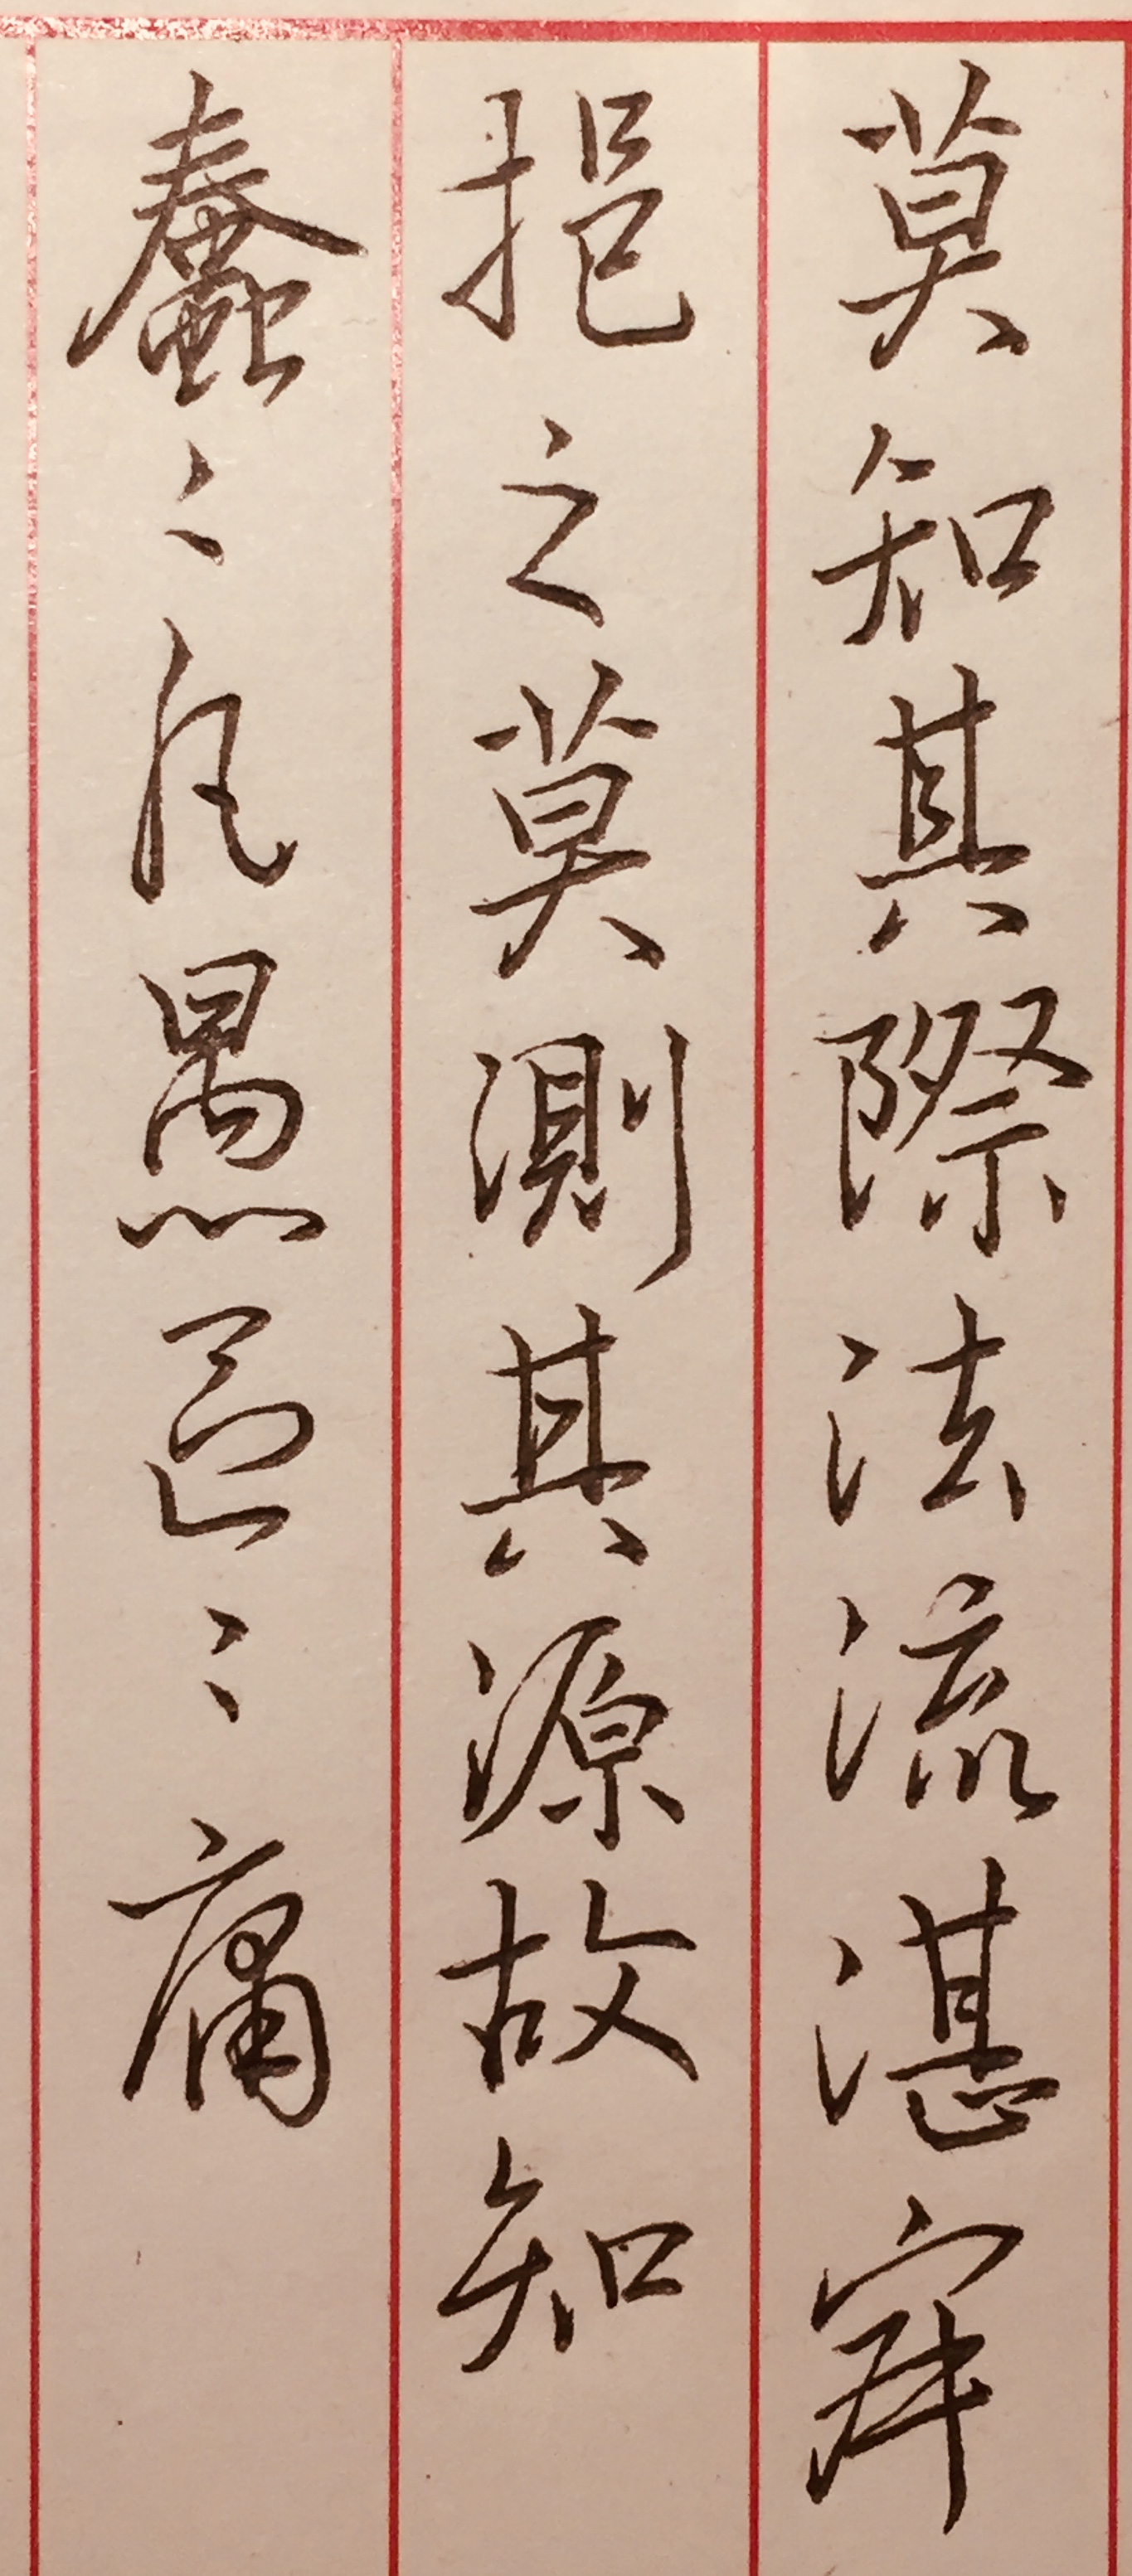 莫知其際法流湛寂
挹之莫測其源故知
蠢〻凡愚區〻庸